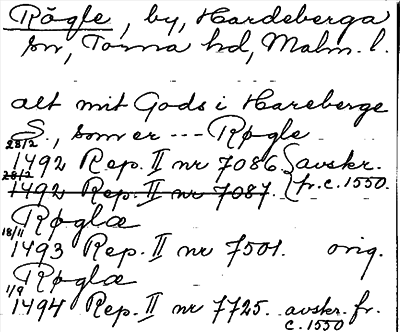 Rögle, by, Hardeberga
sn, Torna hd, Malm. l.
alt mit Gods i Hareberge
S., som er --- Røgle
28/2 1492 Rep. II nr 7086. } avskr.
28/2 1492 Rep. II nr 7087. } fr. c. 1550.
Røglæ
18/11 1493 Rep. II nr 7501. orig.
Røglæ
1/9 1494 Rep. II nr 7725. avskr. fr.
c. 1550